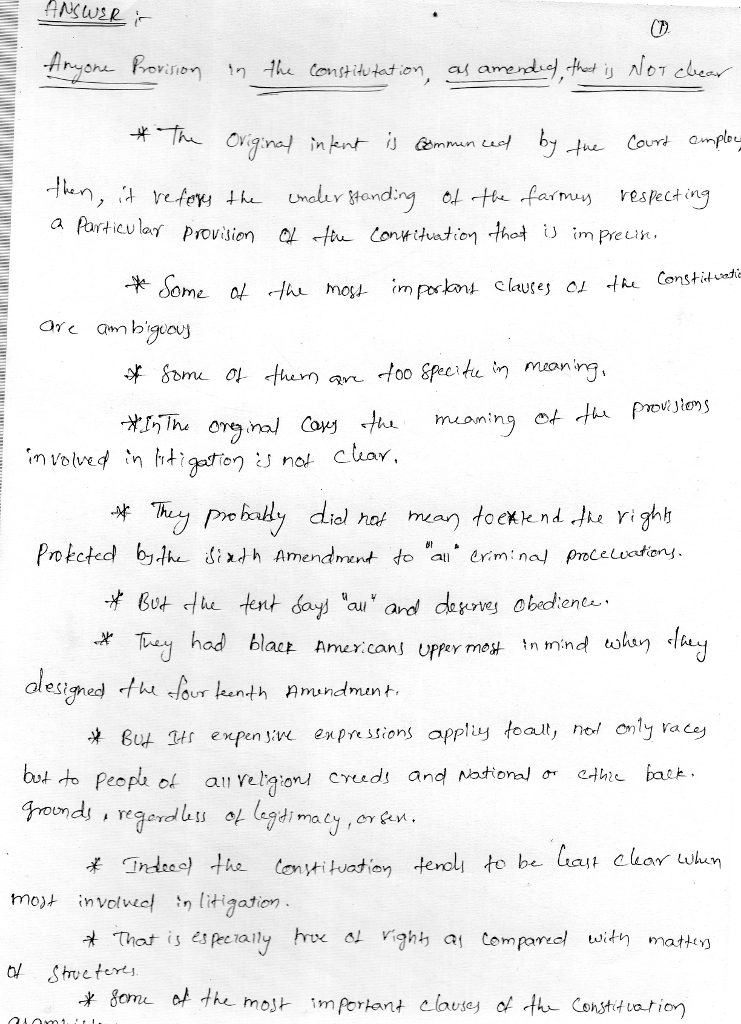 ANSWER :-
(1).
Anyone Provision in the Constitutation, as amended, that is NOT clear
* The Original intent is commenced by the Court employ
then, it refers the understanding of the farmers respecting
a Particular provision of the Constituation that is imprecise.
* Some of the most important clauses of the Constituatio
are ambiguous
* Some of them are too Specific in meaning.
* In The original Cases the meaning of the provisions
involved in litigation is not clear.
* They probably did not mean to extend the rights
Protected by the Sixth Amendment to "all" criminal procecuations.
* But the text Says "all" and deserves Obedience.
* They had black Americans uppermost in mind when they
designed the fourteenth Amendment.
* But Its expensive expressions applies to all, not only races
but to people of all religions creeds and National or ethic back.
grounds, regardless of legitimacy, or sex.
* Indeed the Constituation tends to be least clear when
most involved in litigation.
* That is especially true of rights as compared with matters
of Structeres.
* Some of the most important clauses of the Constituation